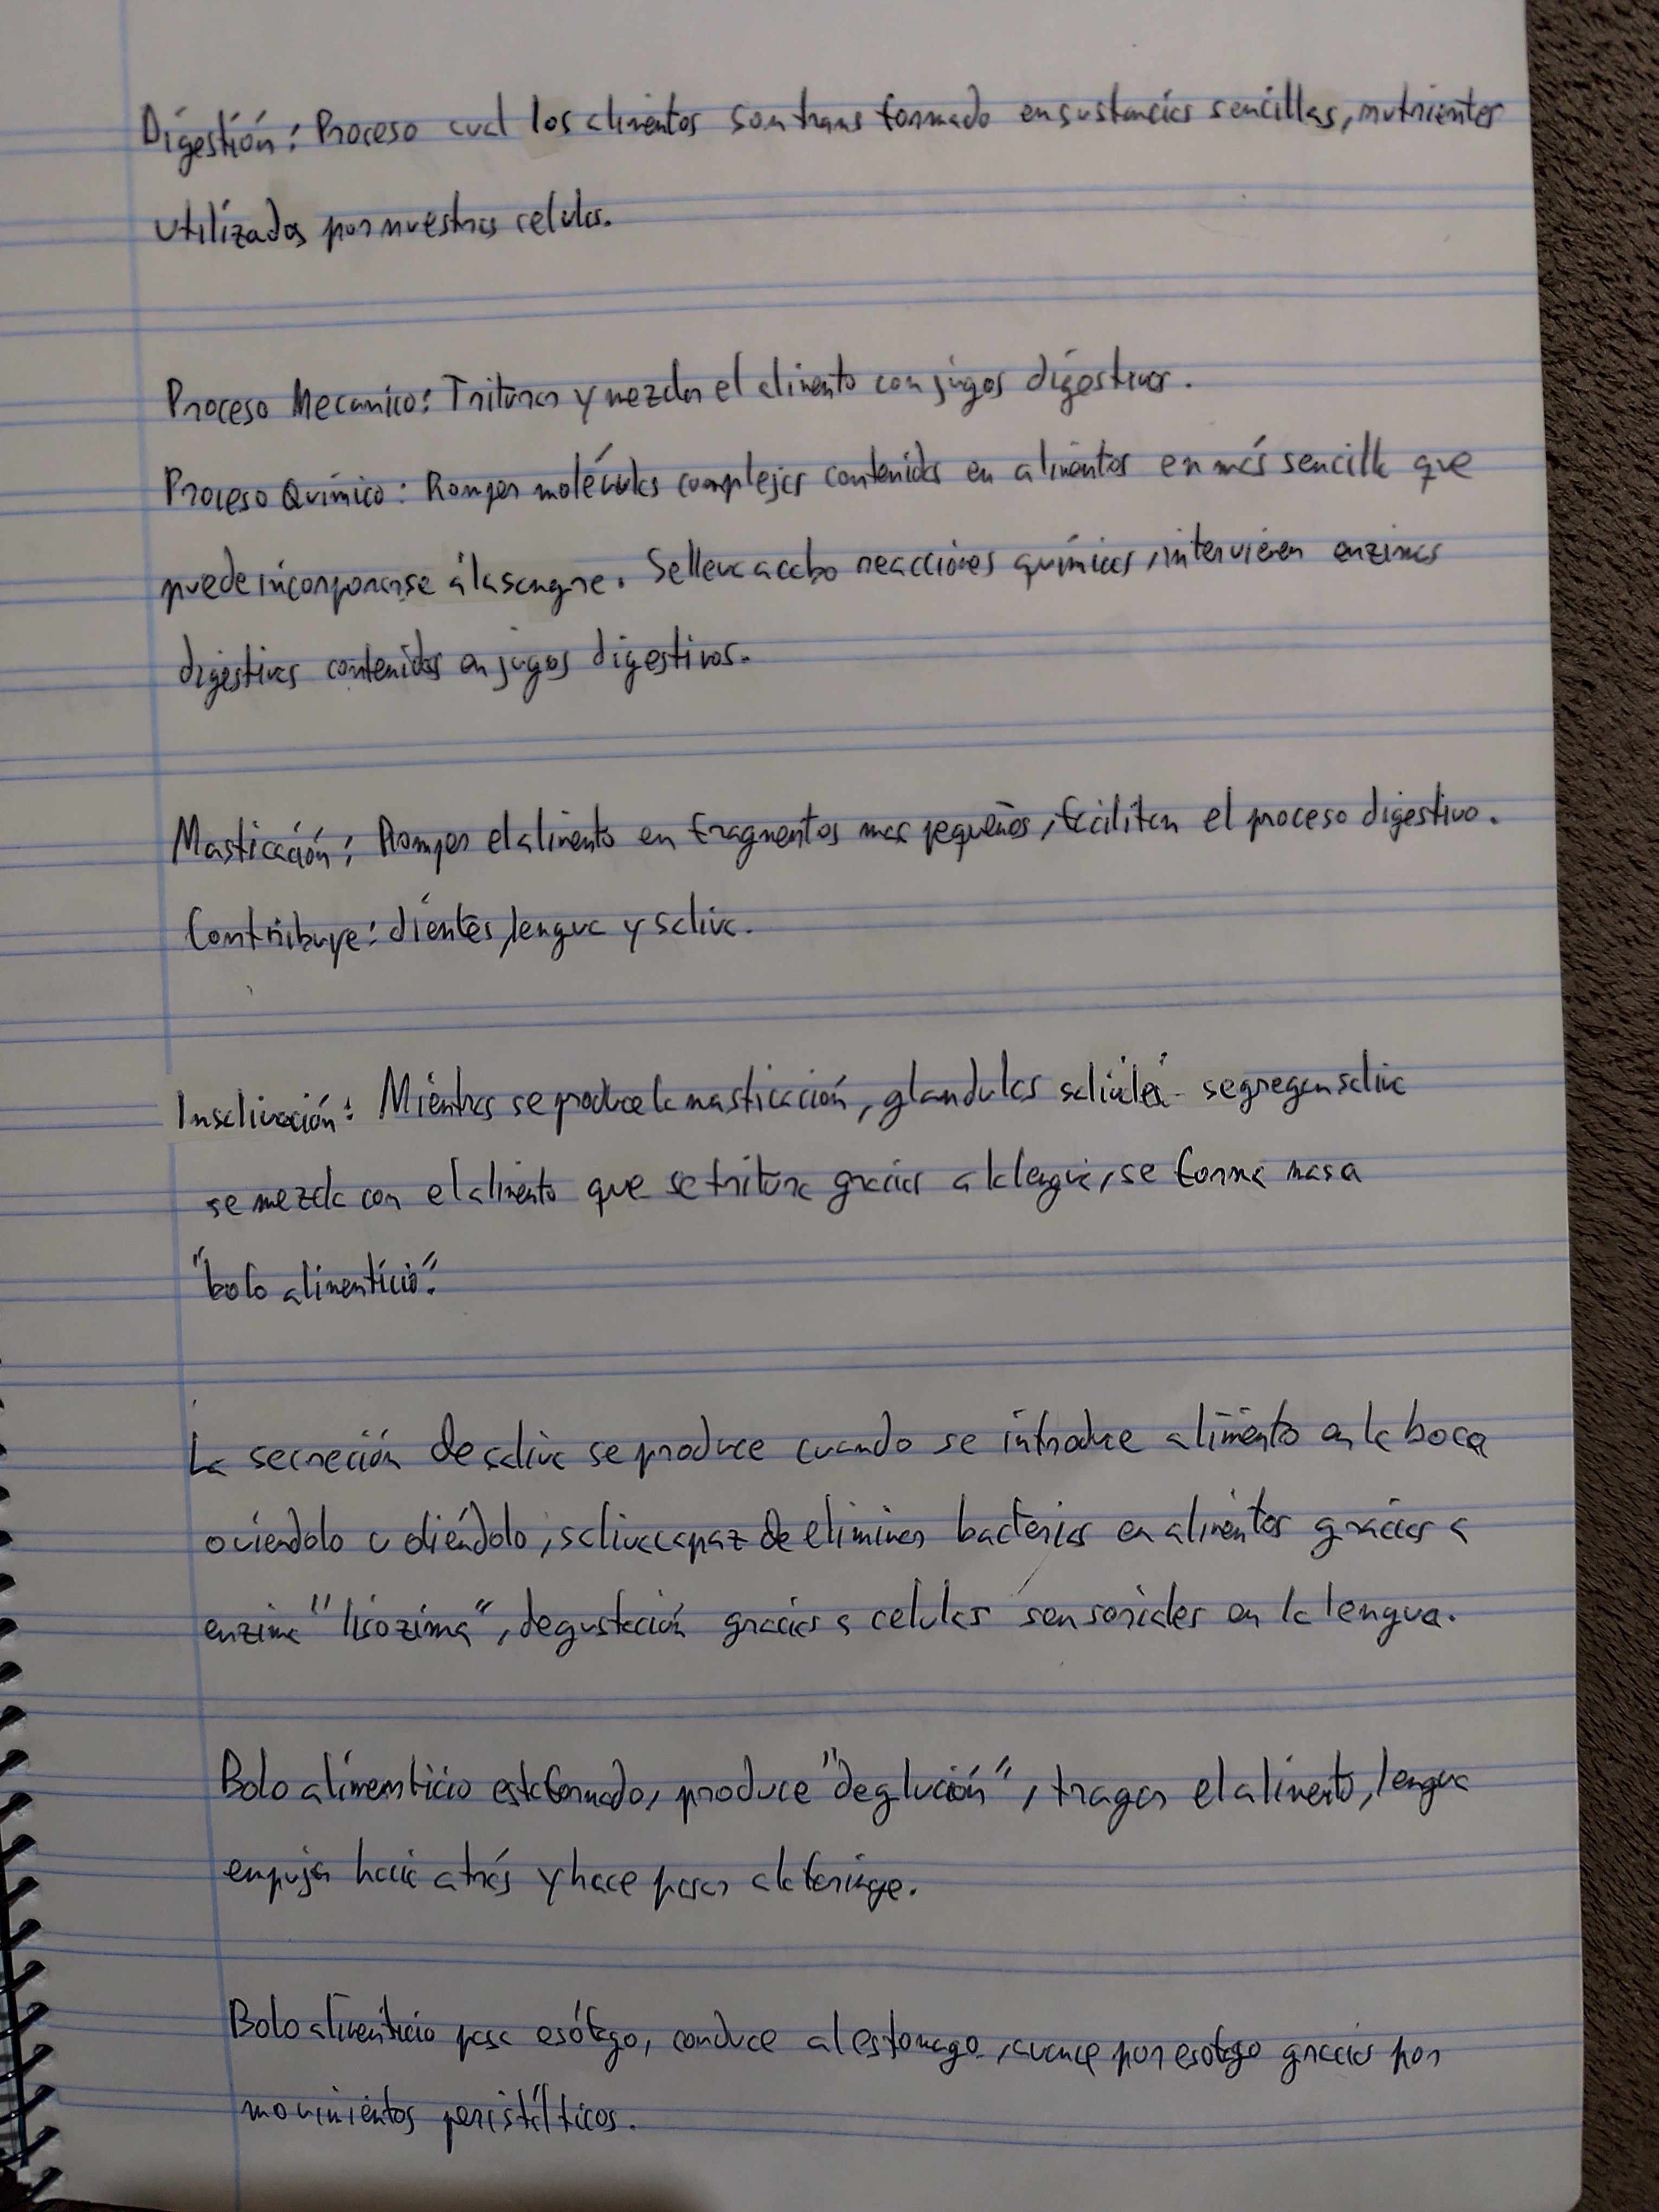 Digestión: Proceso cual los alimentos son transformado en sustancias sencillas, nutrientes
utilizados por nuestras celulas.
Proceso Mecanico: Triturar y mezclar el alimento con jugos digestivos.
Proceso Químico: Romper moléculas complejas contenidas en alimentos en más sencilla que
puede incorporarse a la sangre. Se lleva a cabo reacciones químicas, intervienen enzimas
digestivas contenidas en jugos digestivos.
Masticación: Romper el alimento en fragmentos mas pequeños, facilitan el proceso digestivo.
Contribuye: dientes, lengua y saliva.
Insalivación: Mientras se produce la masticación, glandulas salivales segregan saliva
se mezcla con el alimento que se tritura gracias a la lengua, se forma masa
"bolo alimenticio".
La secreción de saliva se produce cuando se introduce alimento en la boca
oviendolo u oliéndolo, saliva capaz de eliminar bacterias en alimentos gracias a
enzima "lisozima", degustación gracias a celulas sensoriales en la lengua.
Bolo alimenticio esta formado, produce "deglución", tragar el alimento, lengua
empuja hacia atrás y hace pasar a la faringe.
Bolo alimenticio pasa esófago, conduce al estomago, avance por esofago gracias por
movimientos peristálticos.